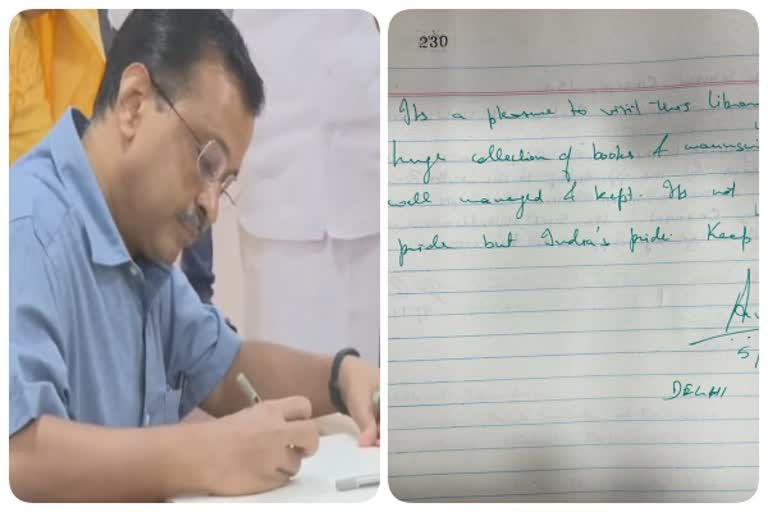 230
Its a pleasure to visit this Librar
huge collection of books & manuscri
well managed & kept. Its not
pride but India's pride. Keep
A.
5/
DELHI